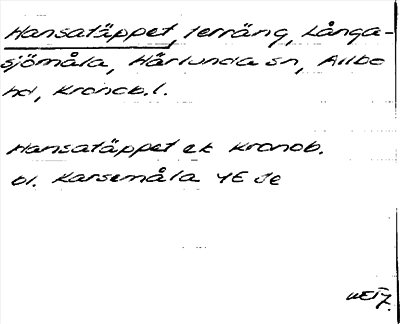 Hansatäppet, terräng, Långa-
sjömåla, Härlunda sn, Allbo
hd, Kronob. l.
Hansatäppet ek Kronob.
bl. Karsemåla 4E Je